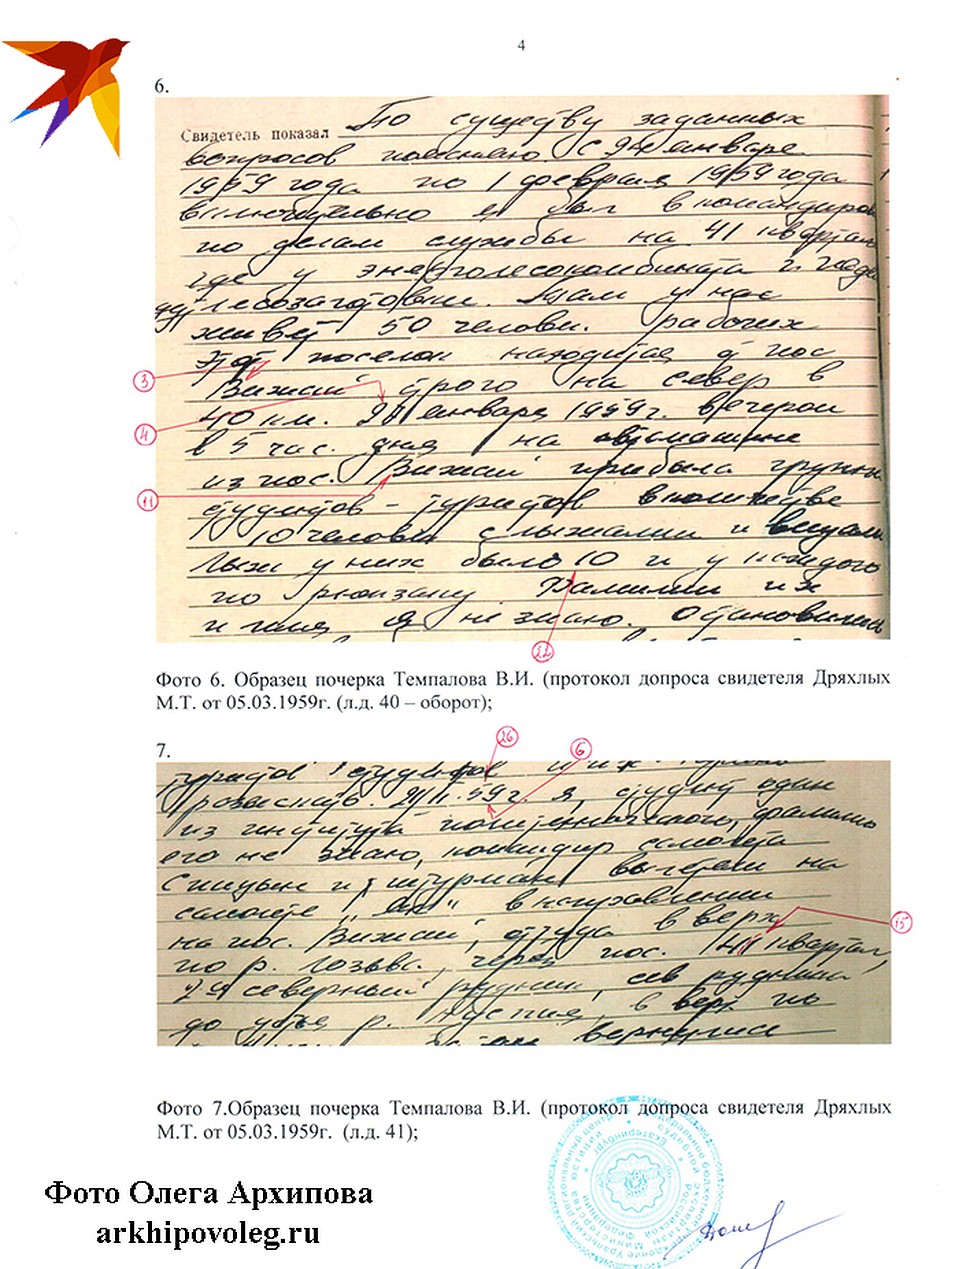 4
6.
Свидетель показал По существу заданных
вопросов поясняю С 24 января
1959 года по 1 февраля 1959 года
включительно я был в командиров
по делам службы на 41 квартал
где у энерголесокомбината
лесозаготовки. Там у нас
живет 50 человек. рабочих
Этот поселок находится от пос
3
Вижай строго на север в
40 км. января 1959 г. вечером
4
в 5 час. дня на автомашине
из пос. Вижай прибыла группа
11
студентов – туристов в количестве
10 человек с лыжами и
Лыж у них было 10 и у каждого
по рюкзаку Фамилии их
и имя я не знаю. Остановились
22
Фото 6. Образец почерка Темпалова В.И. (протокол допроса свидетеля Дряхлых
М.Т. от 05.03.1959г. (л.д. 40 – оборот);
26
7.
6
туристов студентов и их
розыску. 59 г. я, студент один
из института политехнического, фамилию
его не знаю, командир самолета
и штурман вылетели на
самолете „Як" в направлении
15
на пос. Вижай, оттуда в верх
по р. Лозьве, через пос. 41 квартал,
2й северный рудник,
до устья р. Ауспия, в верх по
вернулись
Фото 7.Образец почерка Темпалова В.И. (протокол допроса свидетеля Дряхлых
М.Т. от 05.03.1959г. (л.д. 41);
Фото Олега Архипова
arkhipovoleg.ru